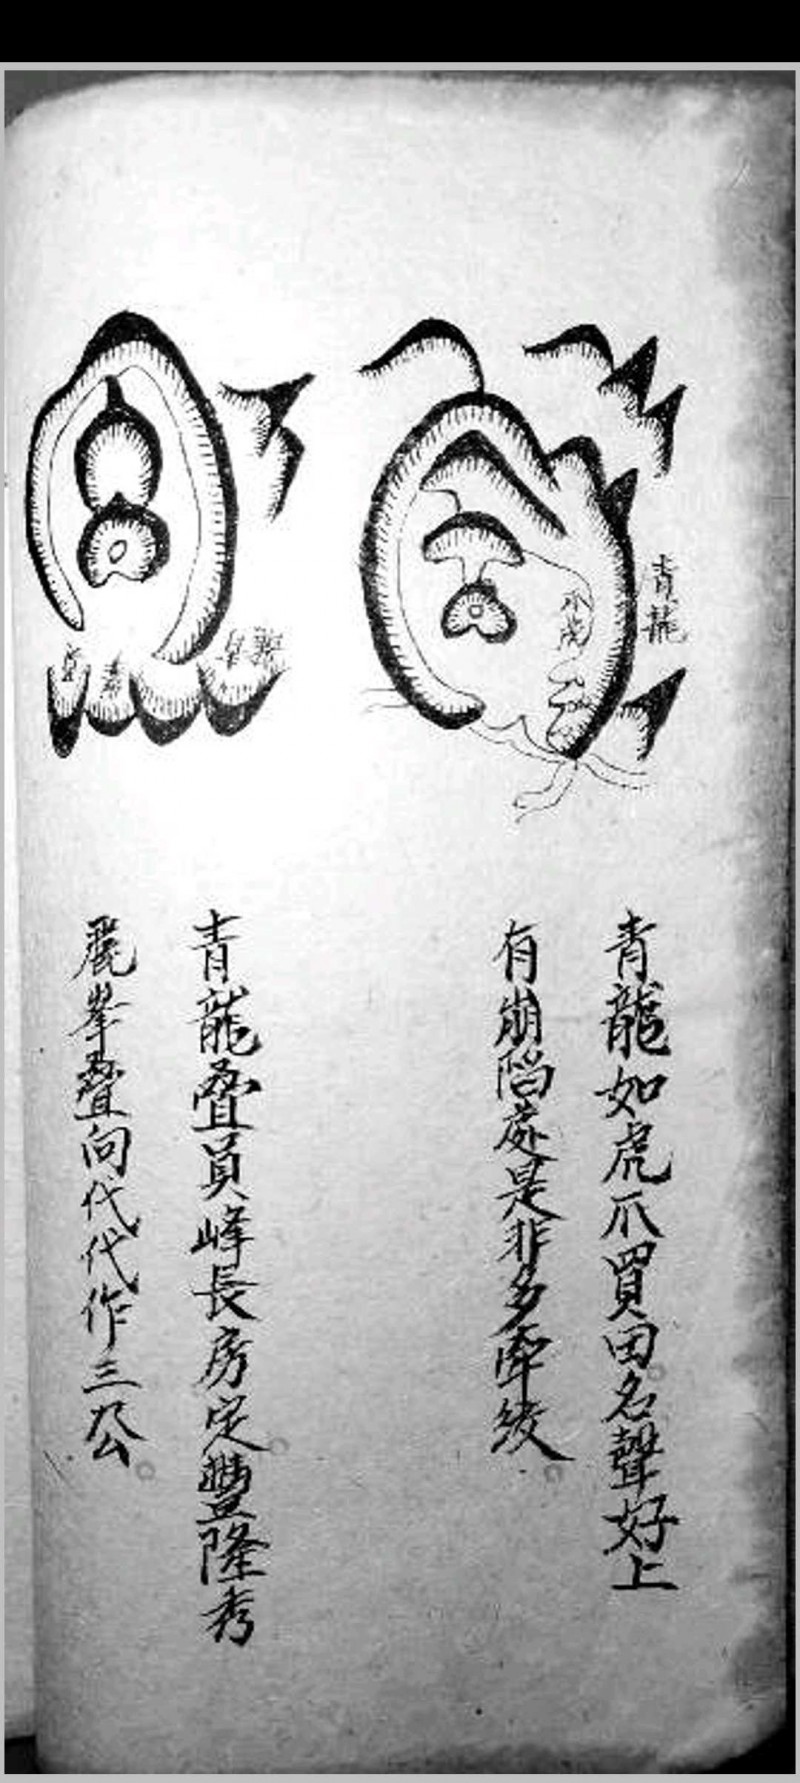 青龍
青龍如虎爪買田名聲好上
有崩陷處是非多牽絞
青龍叠員峰長房定豐隆秀
麗峯疊向代代作三公